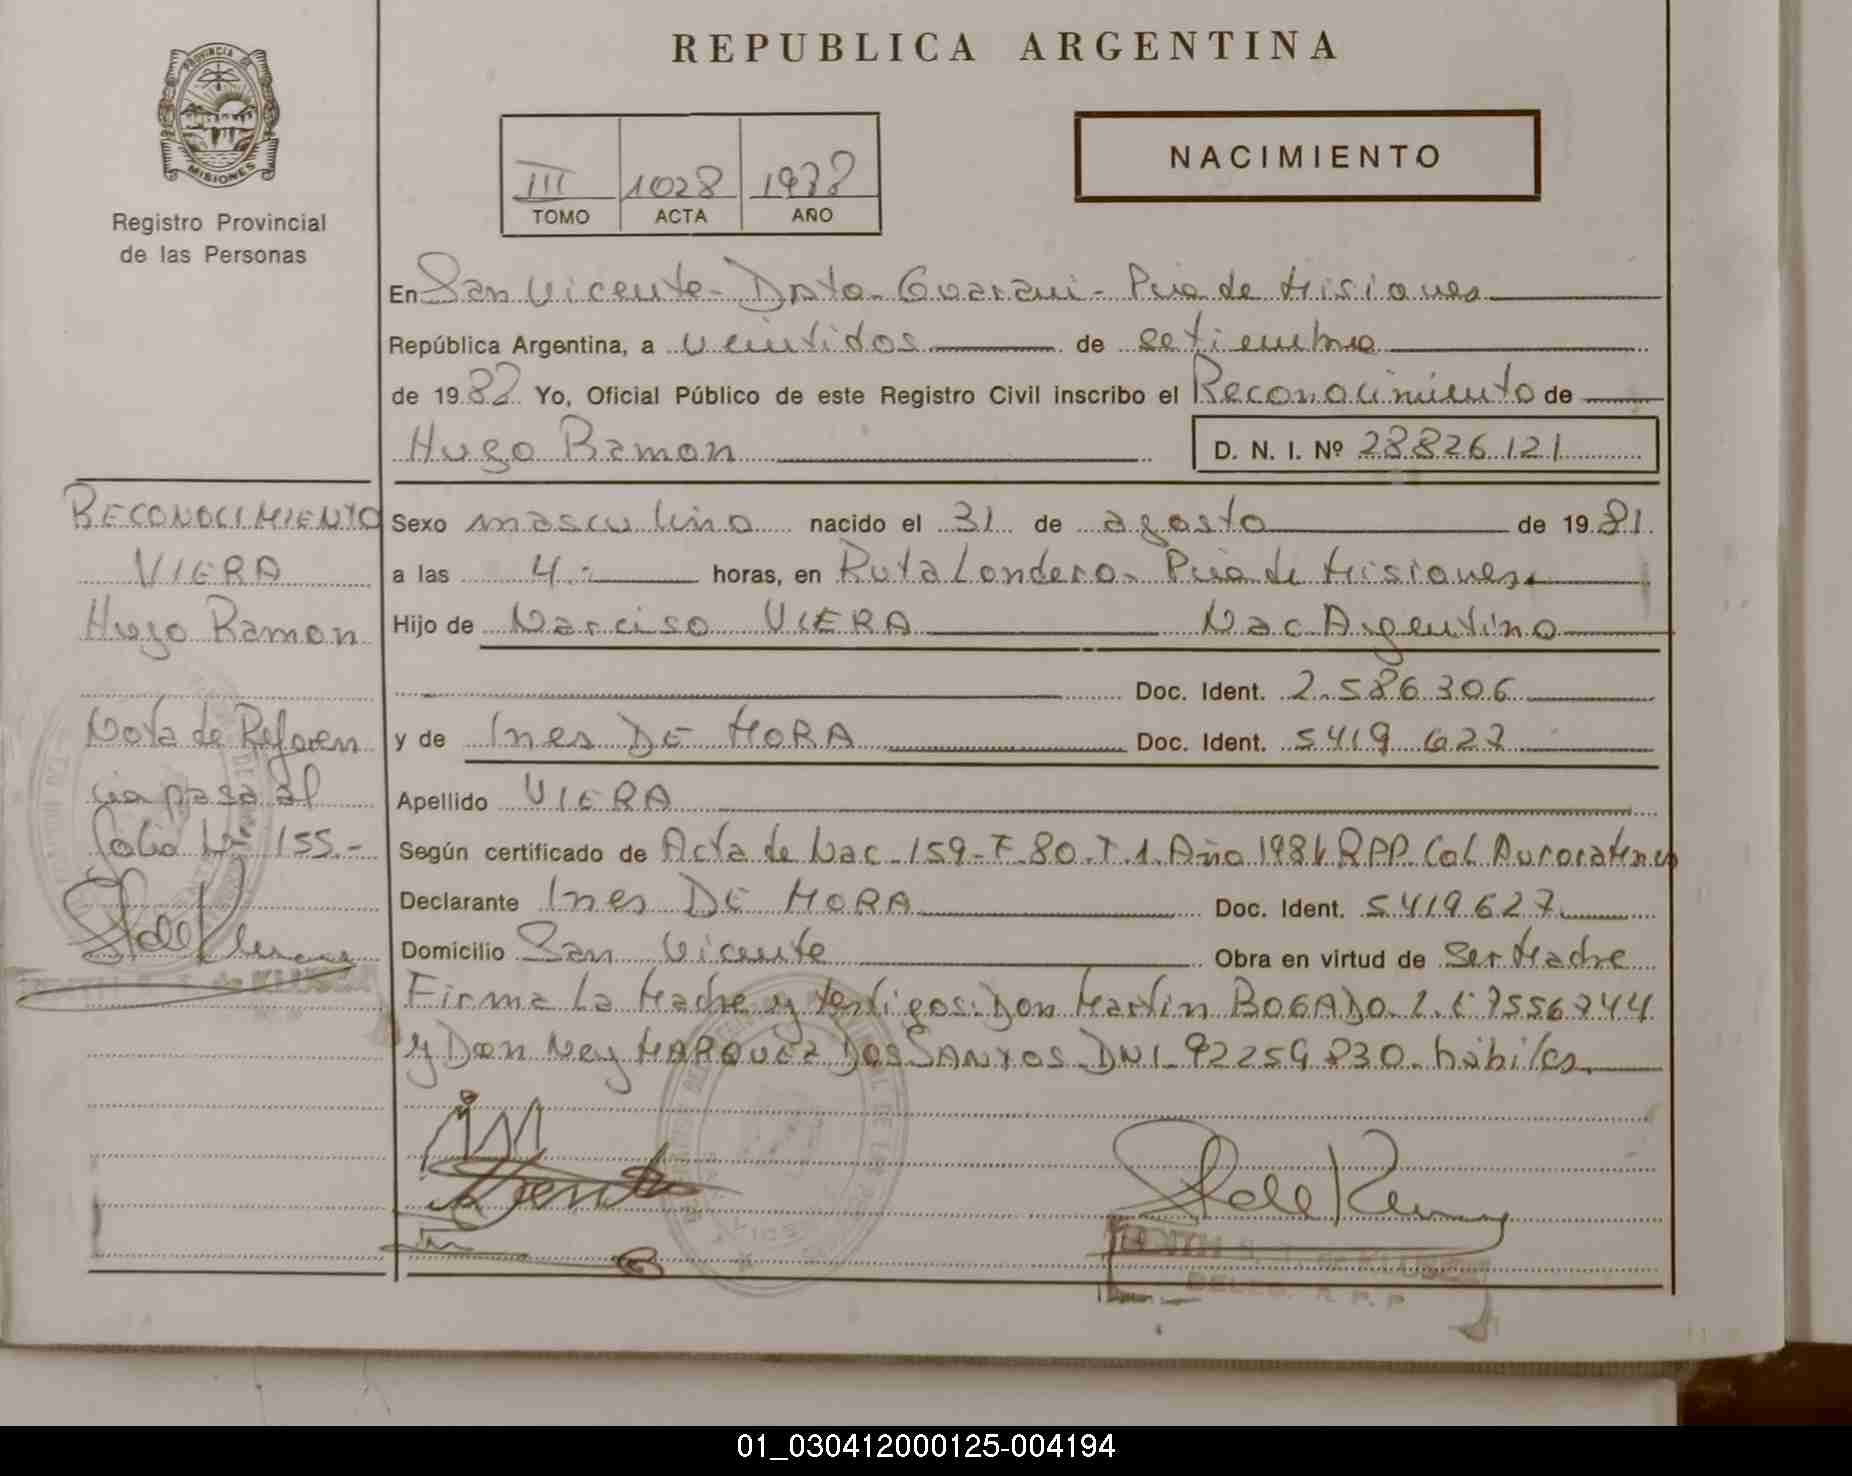 PROVINCIA DE
MISIONES
Registro Provincial
de las Personas
REPUBLICA ARGENTINA
III 1028
TOMO ACTA AÑO
NACIMIENTO
En San Vicente - Dpto. Guarani - Pcia de Misiones
República Argentina, a veintidos de setiembre
de 19 Yo, Oficial Público de este Registro Civil inscribo el Reconocimiento de
Hugo Ramon D. N. I. Nº 28826121
Sexo masculino nacido el 31 de agosto de 1981.
a las 4.- horas, en Ruta Londero - Pcia de Misiones.
Hijo de Narciso VIERA Nac Argentino
Doc. Ident. 2.586306
y de Ines DE MORA Doc. Ident. 5419 627
Apellido VIERA
Según certificado de Acta de Nac. 159-F.80.T.1. Año 1981. RPP. Col.
Declarante Ines DE MORA Doc. Ident. 5419627
Domicilio San Vicente Obra en virtud de Ser Madre
Firma La Madre y testigos: Don Martin BOGADO
y Don Ney MARQUEZ DOS SANTOS DNI 92259830 - hábiles
RECONOCIMIENTO
VIERA
Hugo Ramon
Nota de Referen
cia pasa al
folio Nº 155.-
DELEG. R. P. P.
01_030412000125-004194